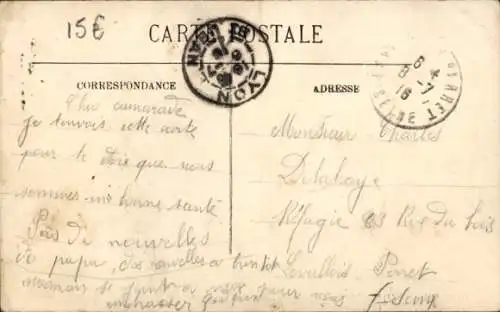 15€
CARTE POSTALE
LYON
CORRESPONDANCE
ADRESSE
Cher camarade
je t'envois cette carte
pour te dire que nous
sommes en bonne santé
Pas de nouvelles
de papa, des nouvelles a bientot
maman se joint a moi pour vous
embrasser
Monsieur Charles
Delahaye
Réfugié 63 Rue du Bois
Levallois Perret
Seine